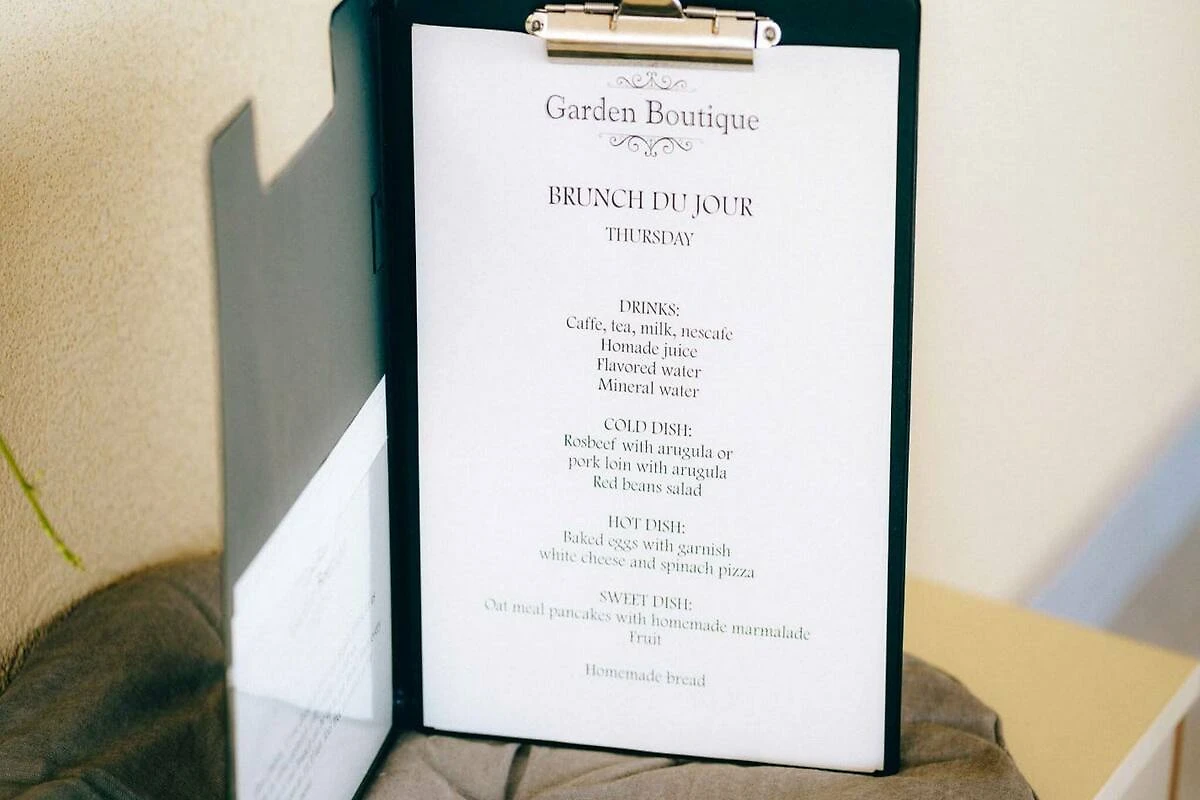 Garden Boutique
BRUNCH DU JOUR
THURSDAY
DRINKS:
Caffe, tea, milk, nescafe
Homade juice
Flavored water
Mineral water
COLD DISH:
Rosbeef with arugula or
pork loin with arugula
Red beans salad
HOT DISH:
Baked eggs with garnish
white cheese and spinach pizza
SWEET DISH:
Oat meal pancakes with homemade marmalade
Fruit
Homemade bread